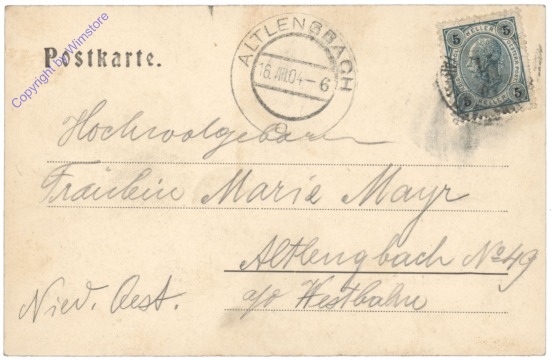 Postkarte.
Copyright by Wimstore
ALTLENGBACH
16.VIII.04-6
5 HELLER 5
5 HELLER 5
Hochwolgeboren
Fräulein Marie Mayr
Altlengbach No 49
a/d Westbahn
Nied. Oest.